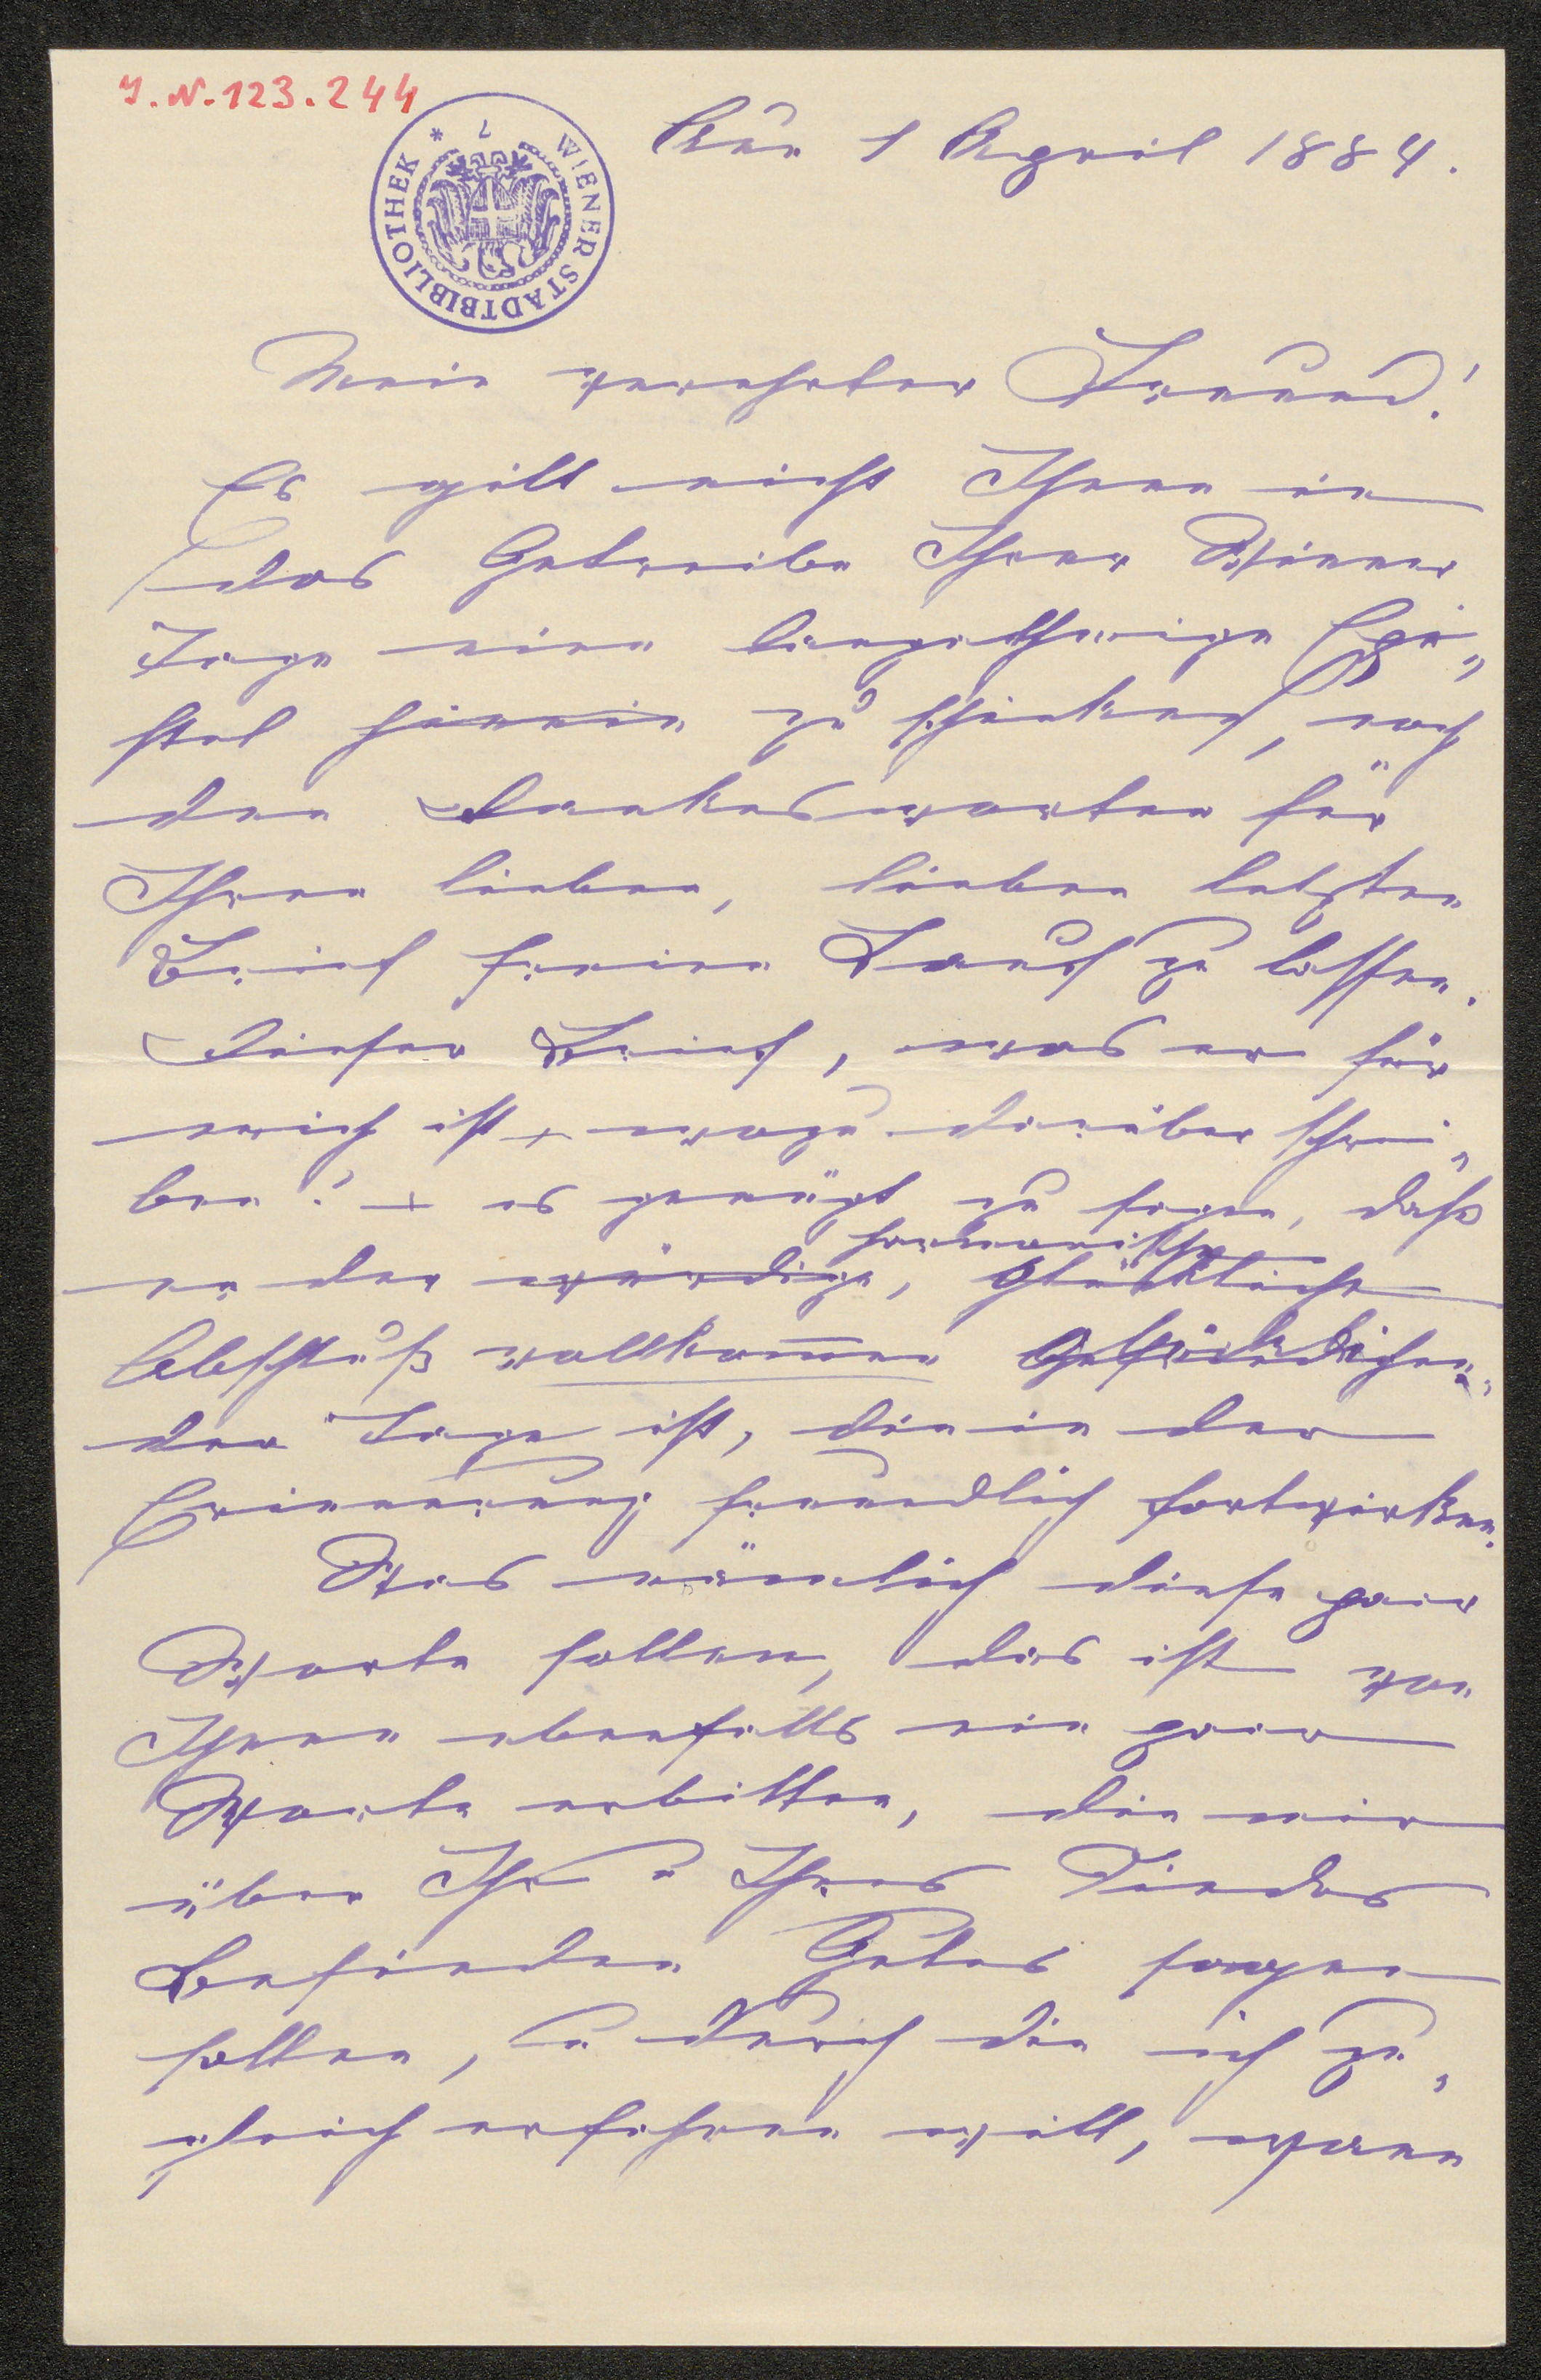 I. N. 123.244
WIENER STADTBIBLIOTHEK
1 April 1884.
Mein verehrter Freund!
Es gilt nicht Ihnen in
das Getreibe Ihrer Wiener
Tage eine langathmige Epi„
stel hinein zu schicken, noch
den Dankesworten für
Ihren lieben, lieben letzten
Brief freien Lauf zu lassen.
Dieser Brief, was er für
mich ist + wozu darüber schrei„
ben? + es genügt zu sagen, daß
harmonische
er der würdige, glückliche
Abschluß vollkommen
der Tage ist, die in der
Erinnerung freundlich fortwirken.
Was nämlich diese paar
Worte sollen, das ist von
Ihnen ebenfalls ein paar
Worte erbitten, die mir
über Ihr u Ihres Kindes
Befinden Gutes sagen
sollen, u durch die ich zu„
gleich erfahren will, wann